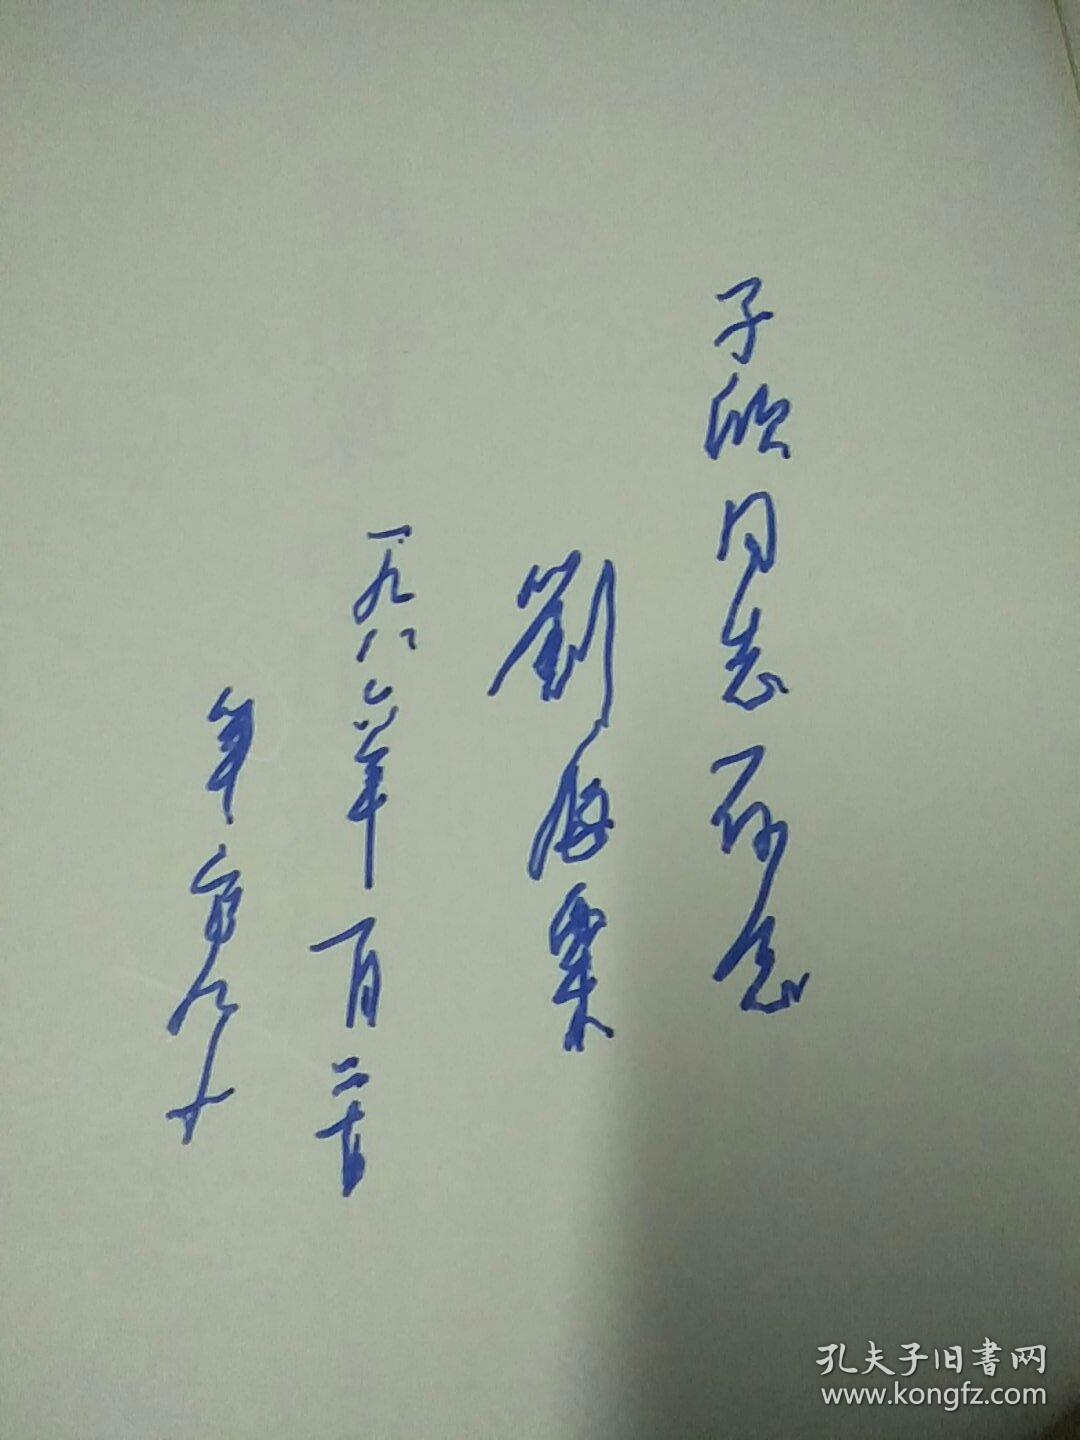 子欣同志存念
劉海粟
一九八六年一月二十日
年方九十
孔夫子旧書网
www.kongfz.com